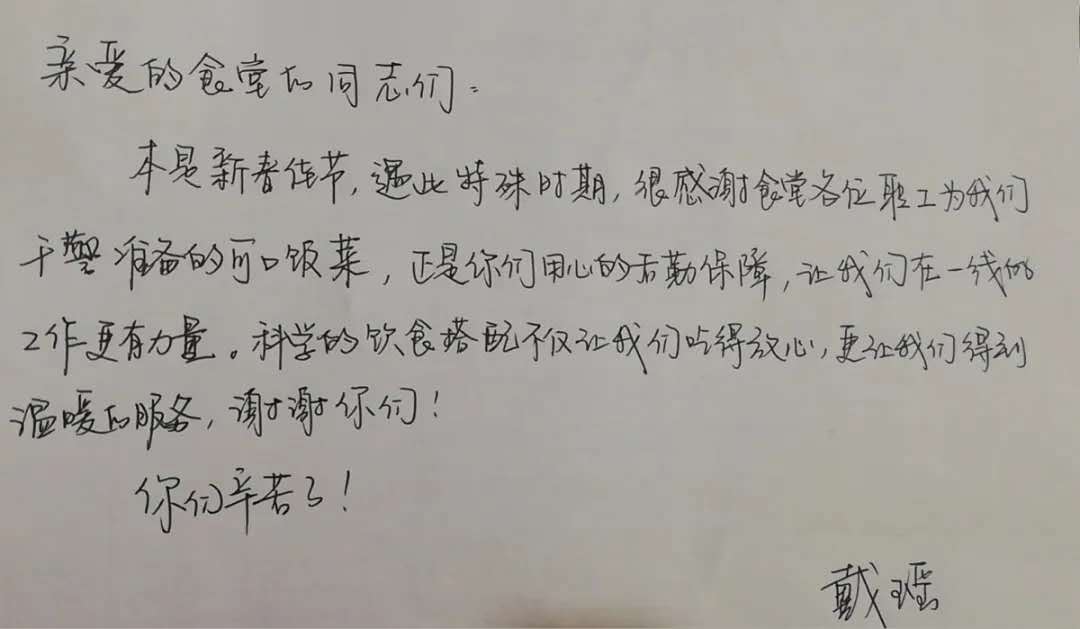 亲爱的食堂的同志们：
本是新春佳节，遇此特殊时期，很感谢食堂各位职工为我们
干警准备的可口饭菜，正是你们用心的后勤保障，让我们在一线的
工作更有力量。科学的饮食搭配不仅让我们吃得放心，更让我们得到
温暖的服务，谢谢你们！
你们辛苦了！
戴瑶